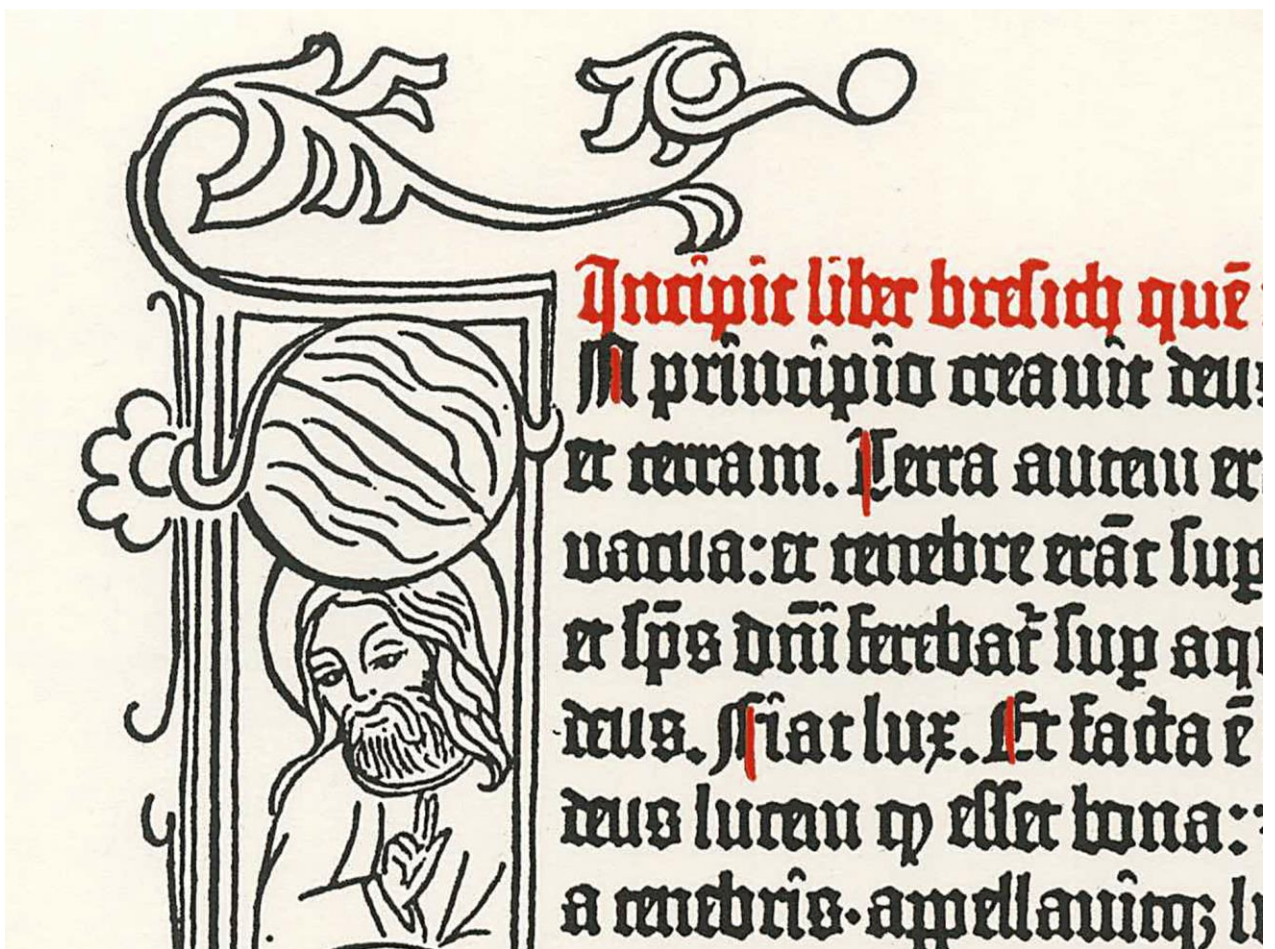 Incipit liber bresith quē
N principio creauit deus
et terram. Terra autem er
uacua: et tenebre erāt sup
et sp̄s dn̄i ferebat᷑ sup aqu
deus. Fiat lux. Et facta ē
deus lucem ꝙ esset bona:
a tenebris · appellauitq;